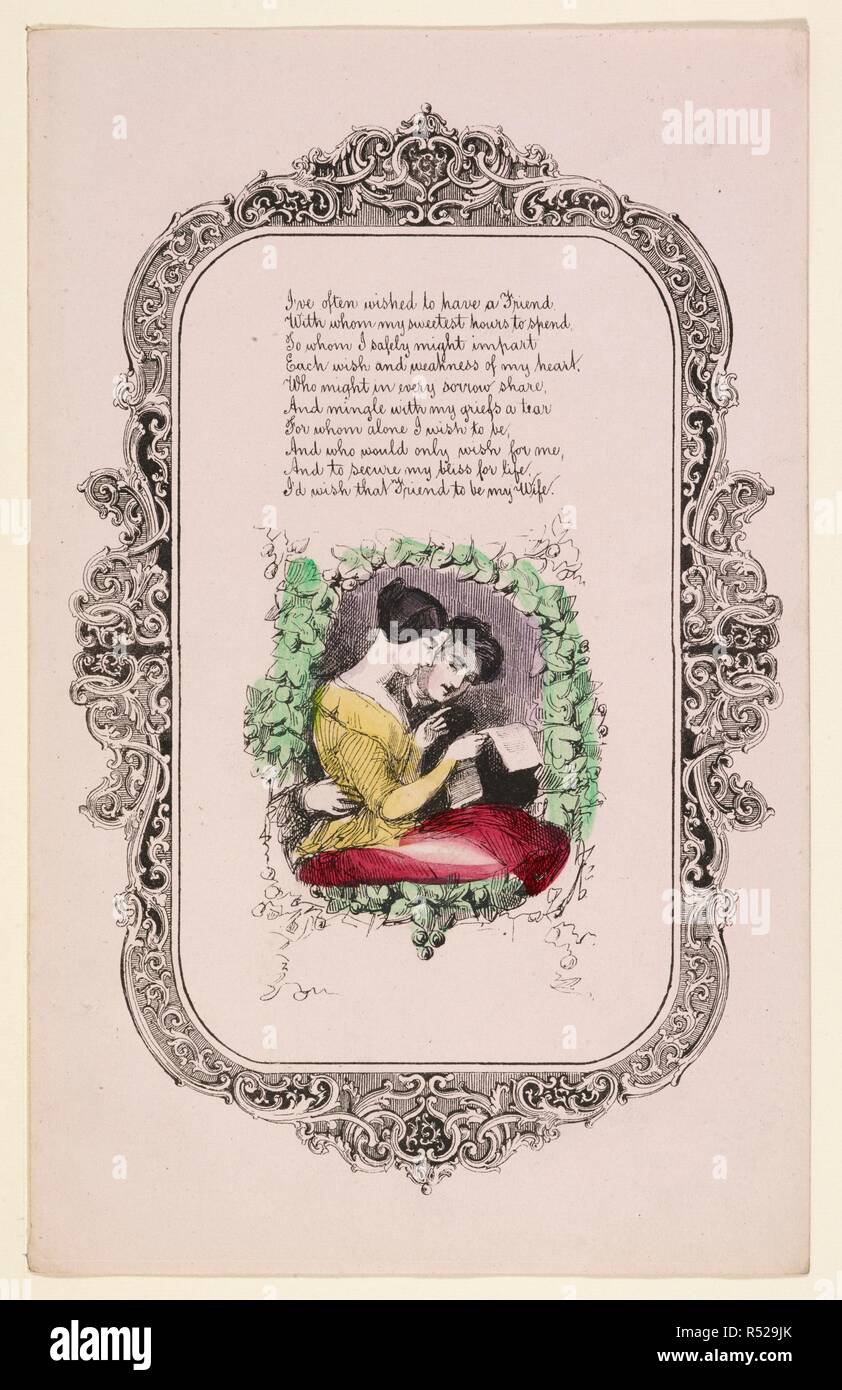 I've often wished to have a Friend.
With whom my sweetest hours to spend,
To whom I safely might impart
Each wish and weakness of my heart.
Who might in every sorrow share,
And mingle with my griefs a tear
For whom alone I wish to be,
And who would only wish for me,
And to secure my bliss for life,
I'd wish that Friend to be my Wife.
a alamy
alamy
a
a
a
a
alamy
Image ID: R529JK
www.alamy.com